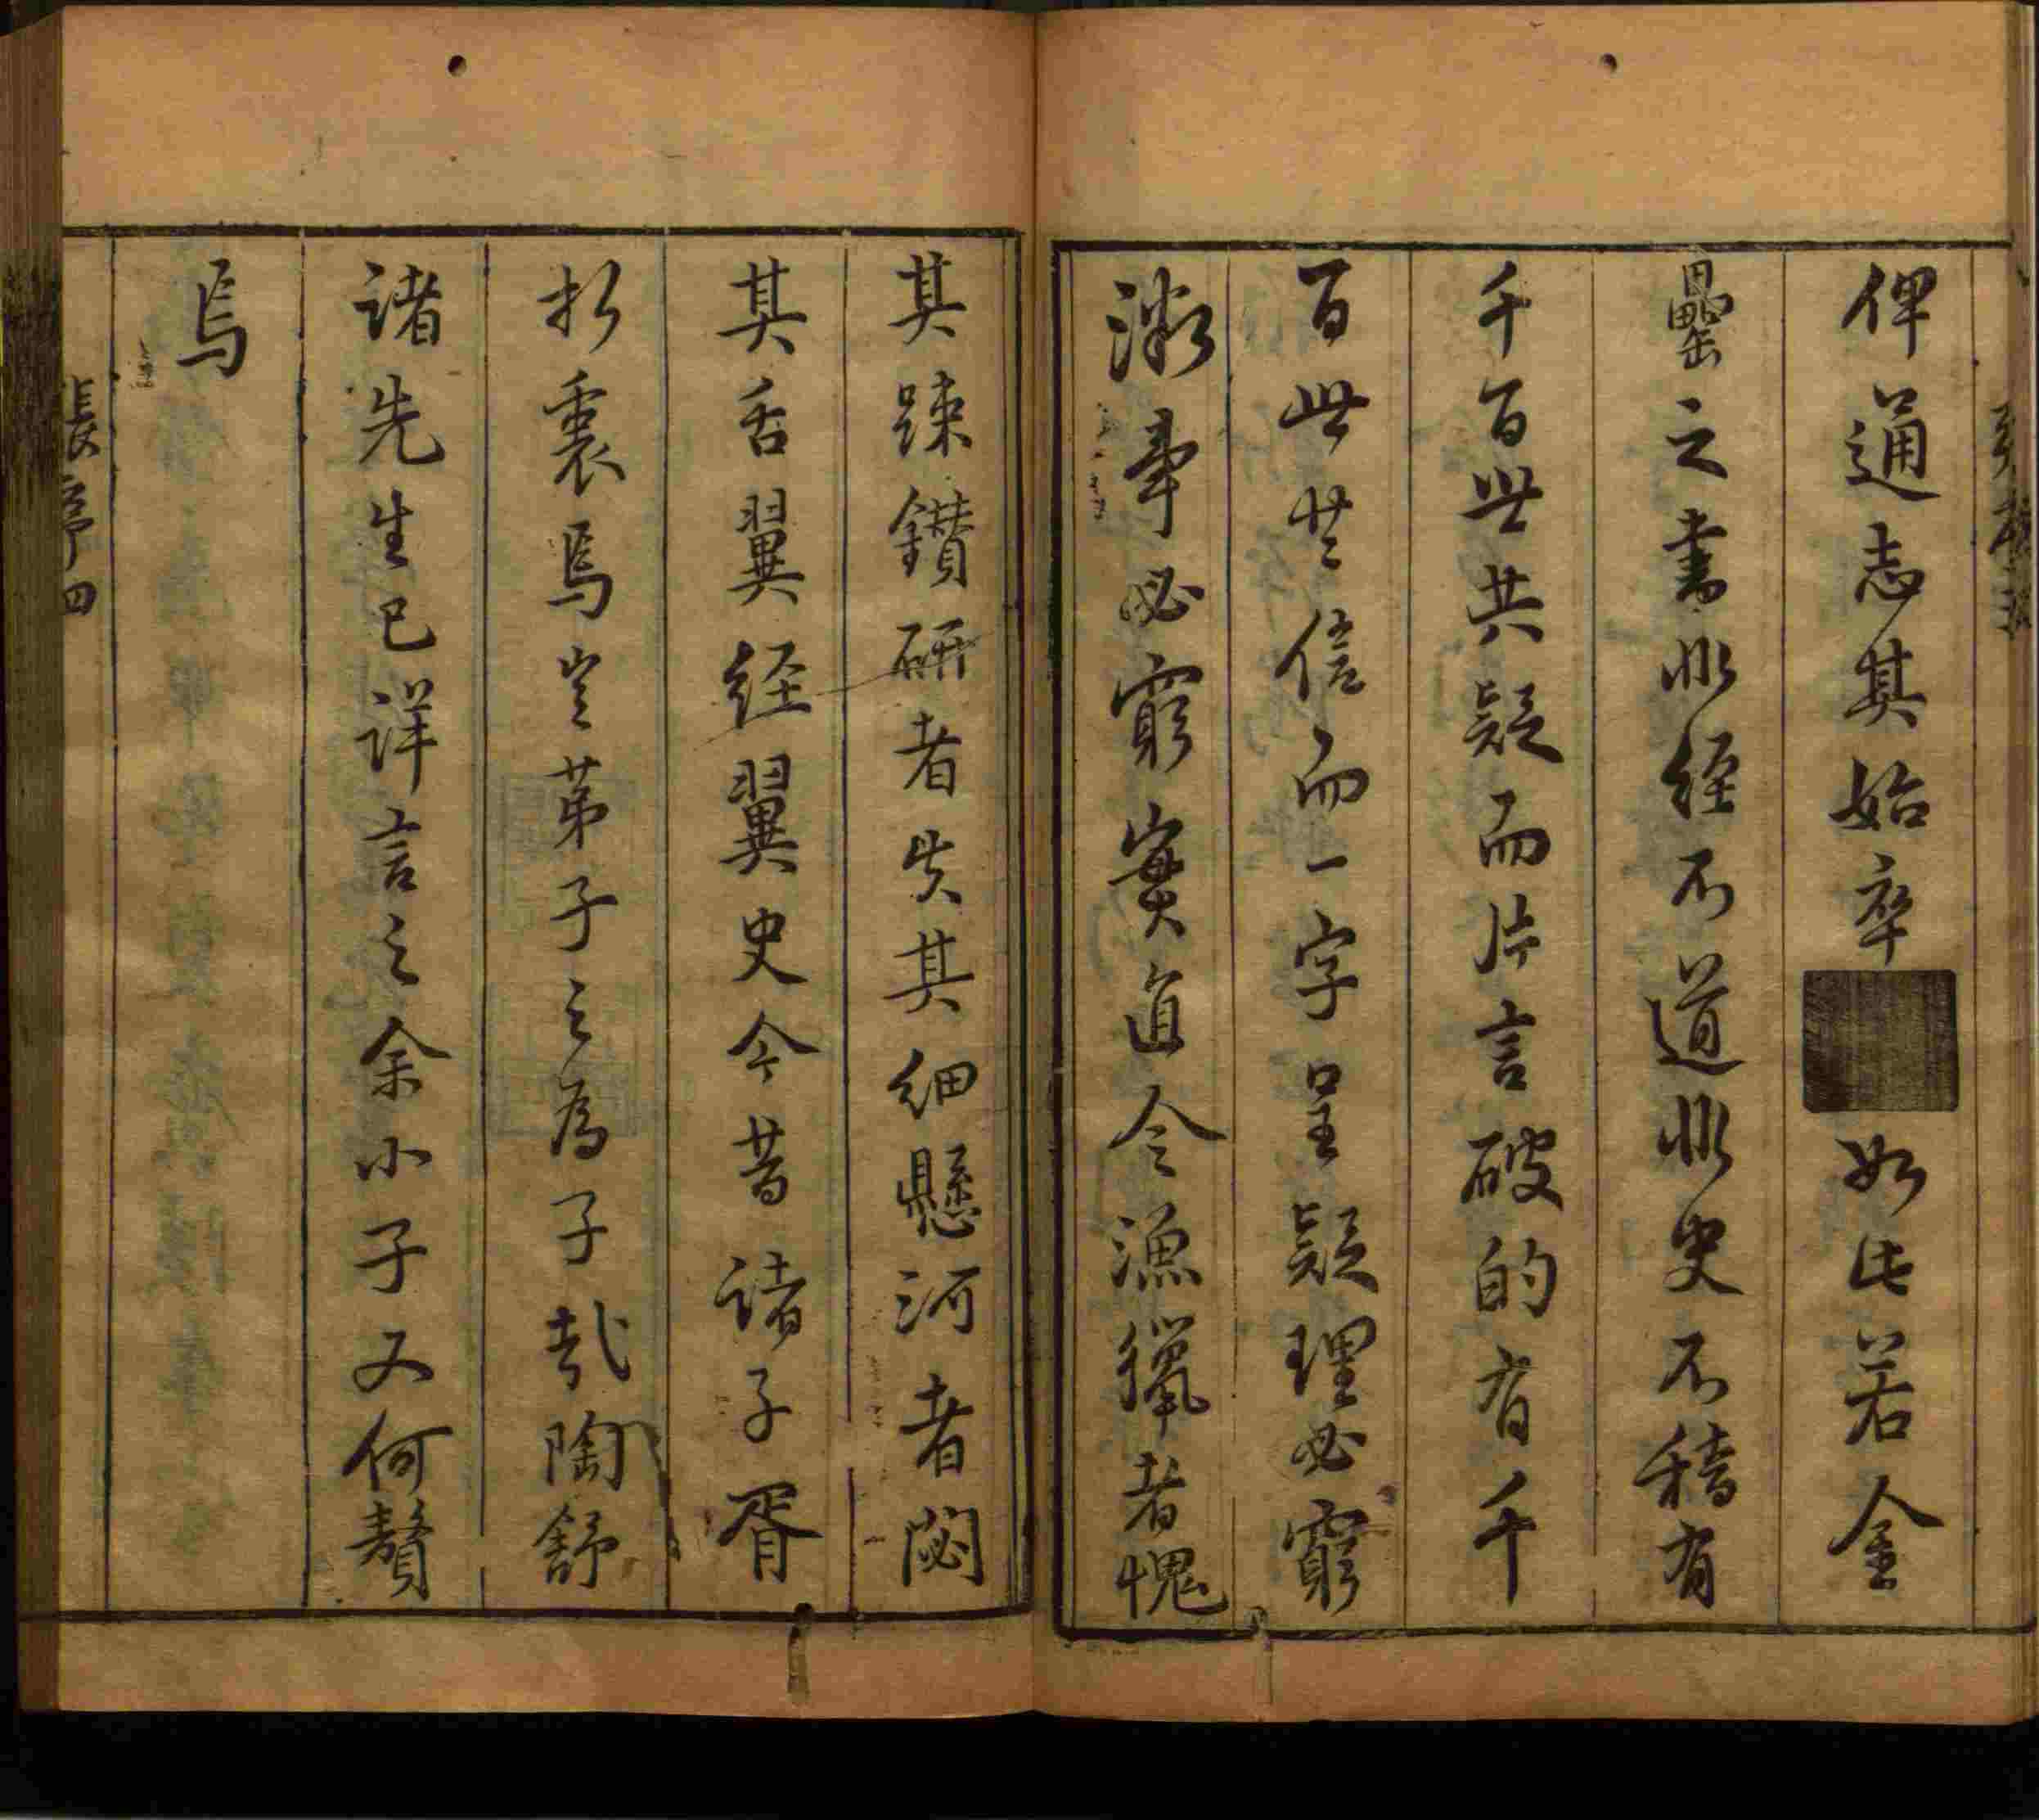 俾通志其始卒■如此若金
罍之書非經不道非史不稽有
千百世共疑而片言破的有千
百世共信而一字呈疑理必窮
淵事必窮實直令漁獵者愧
其疎鑽研者失其細懸河者閟
其舌翼經翼史今昔諸子胥
折衷焉豈弟子之為子哉陶舒
諸先生已詳言之余小子又何贅
焉
張序 四